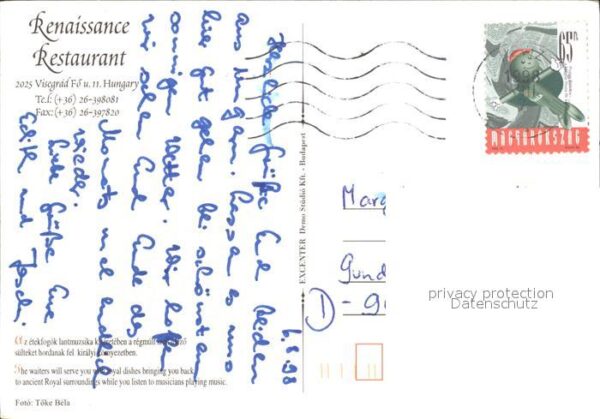 Renaissance
Restaurant
2025 Visegrád Fő u. 11. Hungary
Tel: (+36) 26-398081
Fax: (+36) 26-397820
6.8.98
Herzliche Grüße Euch Beiden
aus Ungarn. Lassen es uns
hier gut gehen bei schönstem
sonnigen Wetter. Wir hoffen
wir sehen Euch Ende des
Monats mal
wieder.
Liebe Grüße Eure
Edith und
az étekfogók lantmuzsika kíséretében a régmúlt
sülteket hordanak fel királyi környezetben.
The waiters will serve you with royal dishes bringing you back
to ancient Royal surroundings while you listen to musicians playing music.
Fotó: Tőke Béla
EXCENTER Demo Stúdió Kft. - Budapest
65 Ft
1998
MAGYARORSZÁG
Marg
Gund
D - 9
privacy protection
Datenschutz